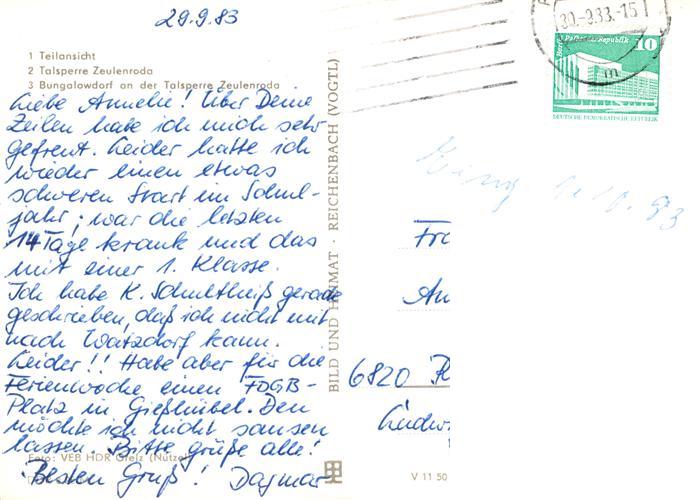 29.9.83
1 Teilansicht
2 Talsperre Zeulenroda
3 Bungalowdorf an der Talsperre Zeulenroda
Liebe Annelie! Über Deine
Zeilen habe ich mich sehr
gefreut. Leider hatte ich
wieder einen etwas
schweren Start im Schul-
jahr; war die letzten
14 Tage krank und das
mit einer 1. Klasse.
Ich habe K. Schultheiß gerade
geschrieben, daß ich nicht mit
nach Watzdorf kann.
Leider!! Habe aber für die
Ferienwoche einen FDGB-
Platz in Gießhübel. Den
möchte ich nicht sausen
lassen. Bitte grüße alle!
Besten Gruß! Dagmar
Foto: VEB HDR Greiz (Nützel)
BILD UND HEIMAT · REICHENBACH (VOGTL)
V 11 50
30.-9.83.-15
10
DEUTSCHE DEMOKRATISCHE REPUBLIK
10.83
Fr
An
6820 R